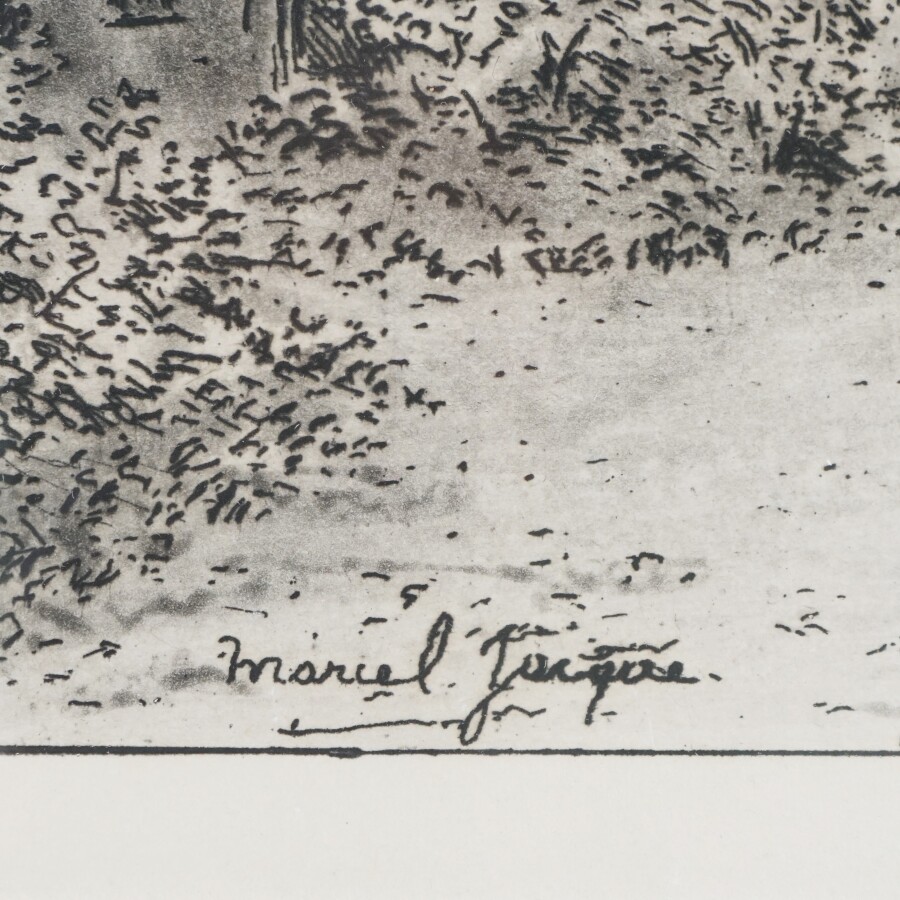 Marcel Jacque.